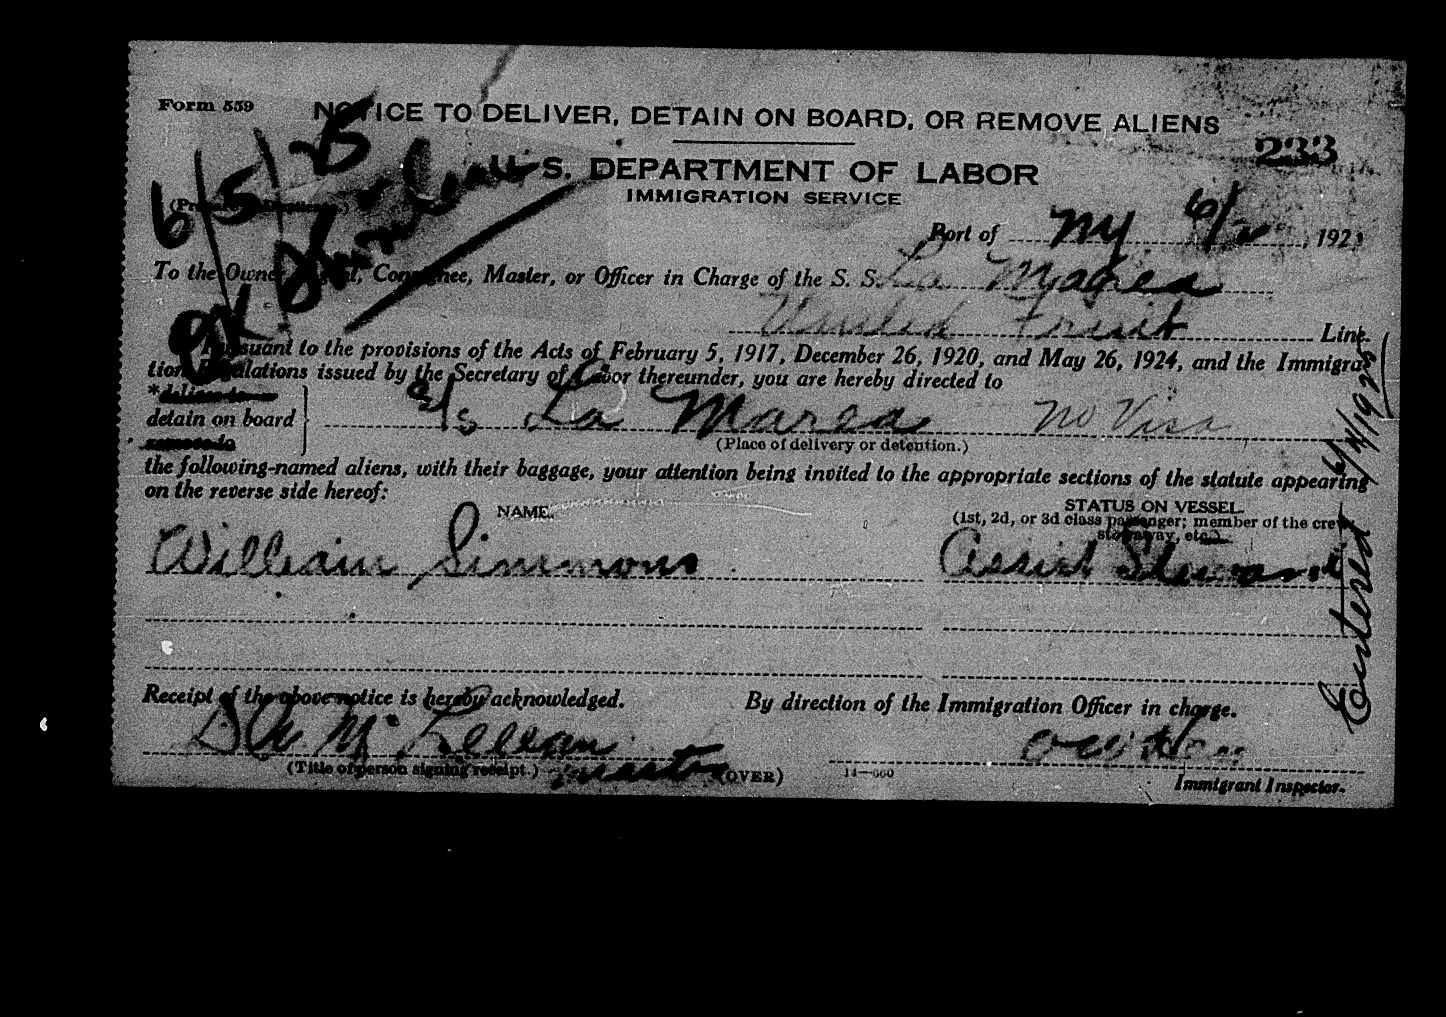 Form 559
NOTICE TO DELIVER, DETAIN ON BOARD, OR REMOVE ALIENS
233
U. S. DEPARTMENT OF LABOR
IMMIGRATION SERVICE
6/5/25
Port of NY 6/2, 192
To the Owner, Agent, Consignee, Master, or Officer in Charge of the S. S. La Marea
United Fruit Line.
Pursuant to the provisions of the Acts of February 5, 1917, December 26, 1920, and May 26, 1924, and the Immigra-
tion Regulations issued by the Secretary of Labor thereunder, you are hereby directed to
*deliver to
detain on board
remove to
S/S La Marea No Visa
(Place of delivery or detention.)
the following-named aliens, with their baggage, your attention being invited to the appropriate sections of the statute appearing
on the reverse side hereof:
NAME.
STATUS ON VESSEL.
(1st, 2d, or 3d class passenger; member of the crew,
stowaway, etc.)
William Simmons Assist Steward
Entered
Receipt of the above notice is hereby acknowledged.
By direction of the Immigration Officer in charge.
(Title of person signing receipt.) master
(OVER)
14—660
Immigrant Inspector.